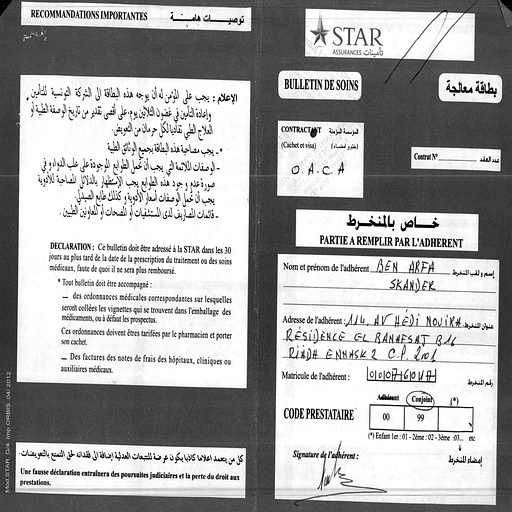 RECOMMANDATIONS IMPORTANTES
توصيات هامة
الإعلام : يجب على المؤمن له أن يوجه هذه البطاقة الى الشركة التونسية للتأمين
وإعادة التأمين في غضون الثلاثين يوم، على أقصى تقدير من تاريخ الوصفة الطبية أو
العلاج الطبي تفاديا لكل حرمان من التعويض.
*ـ يجب مصاحبة هذه البطاقة بجميع الوثائق الطبية
ـ الوصفات الملائمة التي يجب أن تحمل الطوابع الموجودة على علب الدواء و في
صورة عدم وجود هذه الطوابع يجب الاستظهار بالدلائل المصاحبة للأدوية
يجب أن تحمل الوصفات أسعار الأدوية و كذلك طابع الصيدلي.
ـ قائمات المصاريف لدى المستشفيات أو المصحات أو المعاونين الطبيين.
DECLARATION : Ce bulletin doit être adressé à la STAR dans les 30
jours au plus tard de la date de la prescription du traitement ou des soins
médicaux, faute de quoi il ne sera plus remboursé.
* Tout bulletin doit être accompagné :
— des ordonnances médicales correspondantes sur lesquelles
seront collées les vignettes qui se trouvent dans l'emballage des
médicaments, ou à défaut les prospectus.
Ces ordonnances doivent être tarifées par le pharmacien et porter
son cachet.
— Des factures des notes de frais des hôpitaux, cliniques ou
auxiliaires médicaux.
كل من يتعمد اعلاما كاذبا يكون عرضة للتتبعات العدلية إضافة الى فقدانه حق التمتع بالتعويضات.
Une fausse déclaration entraînera des poursuites judiciaires et la perte du droit aux
prestations.
Mod.STAR. G/4. Imp ORBIS 04/ 2012
STAR
ASSURANCES تأمينات
BULLETIN DE SOINS
بطاقة معالجة
CONTRACTANT المؤسسة المؤمنة
(Cachet et visa) (ختم و إمضاء)
O.A.C.A
Contrat N° عدد العقد
خاص بالمنخرط
PARTIE A REMPLIR PAR L'ADHERENT
Nom et prénom de l'adhérent BEN ARFA إسم و لقب المنخرط
SKANDER
Adresse de l'adhérent : 114, AV HEDI NOUIRA عنوان المنخرط
RÉSIDENCE EL BANAFSAJ B16
RIADH ENNASR 2 C.P. 2001
Matricule de l'adhérent : رقم المنخرط
Adhérent Conjoint (*)
CODE PRESTATAIRE 00 99
(*) Enfant 1er : 01 - 2ème : 02 - 3ème :03... etc
Signature de l'adhérent : إمضاء المنخرط